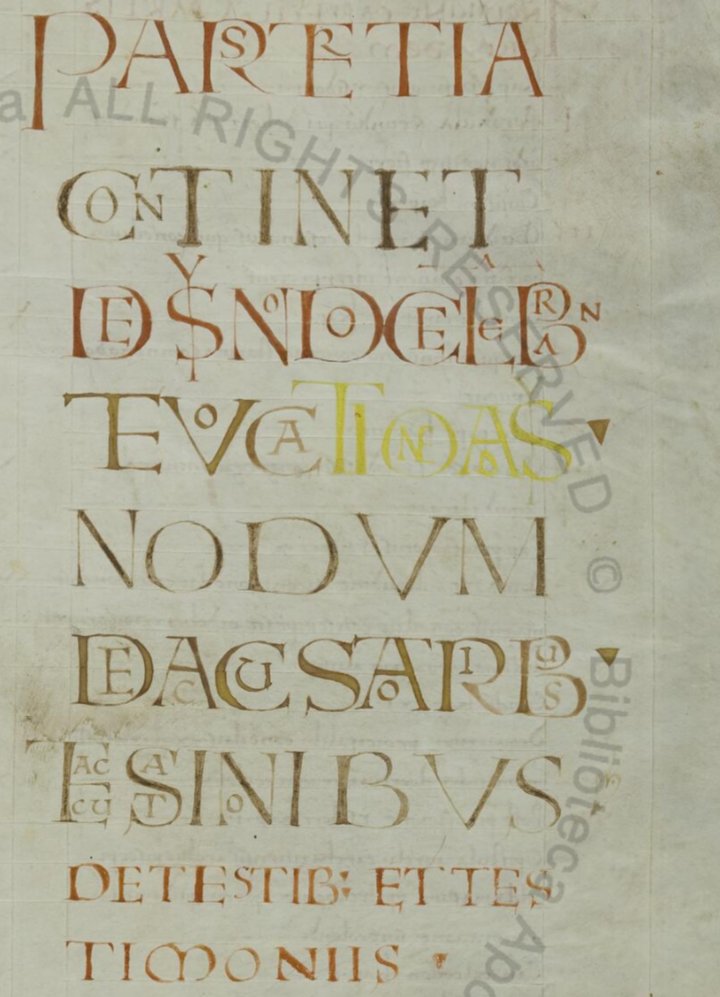 PARS TERTIA
CONTINET
DE SYNODO CELEBRAN
ET VOCATIONE AD S
NODUM
DE ACCUSATORIBUS
ET ACCUSATIONIBUS
DE TESTIB; ET TES
TIMONIIS
a ALL RIGHTS RESERVED © Biblioteca Apo